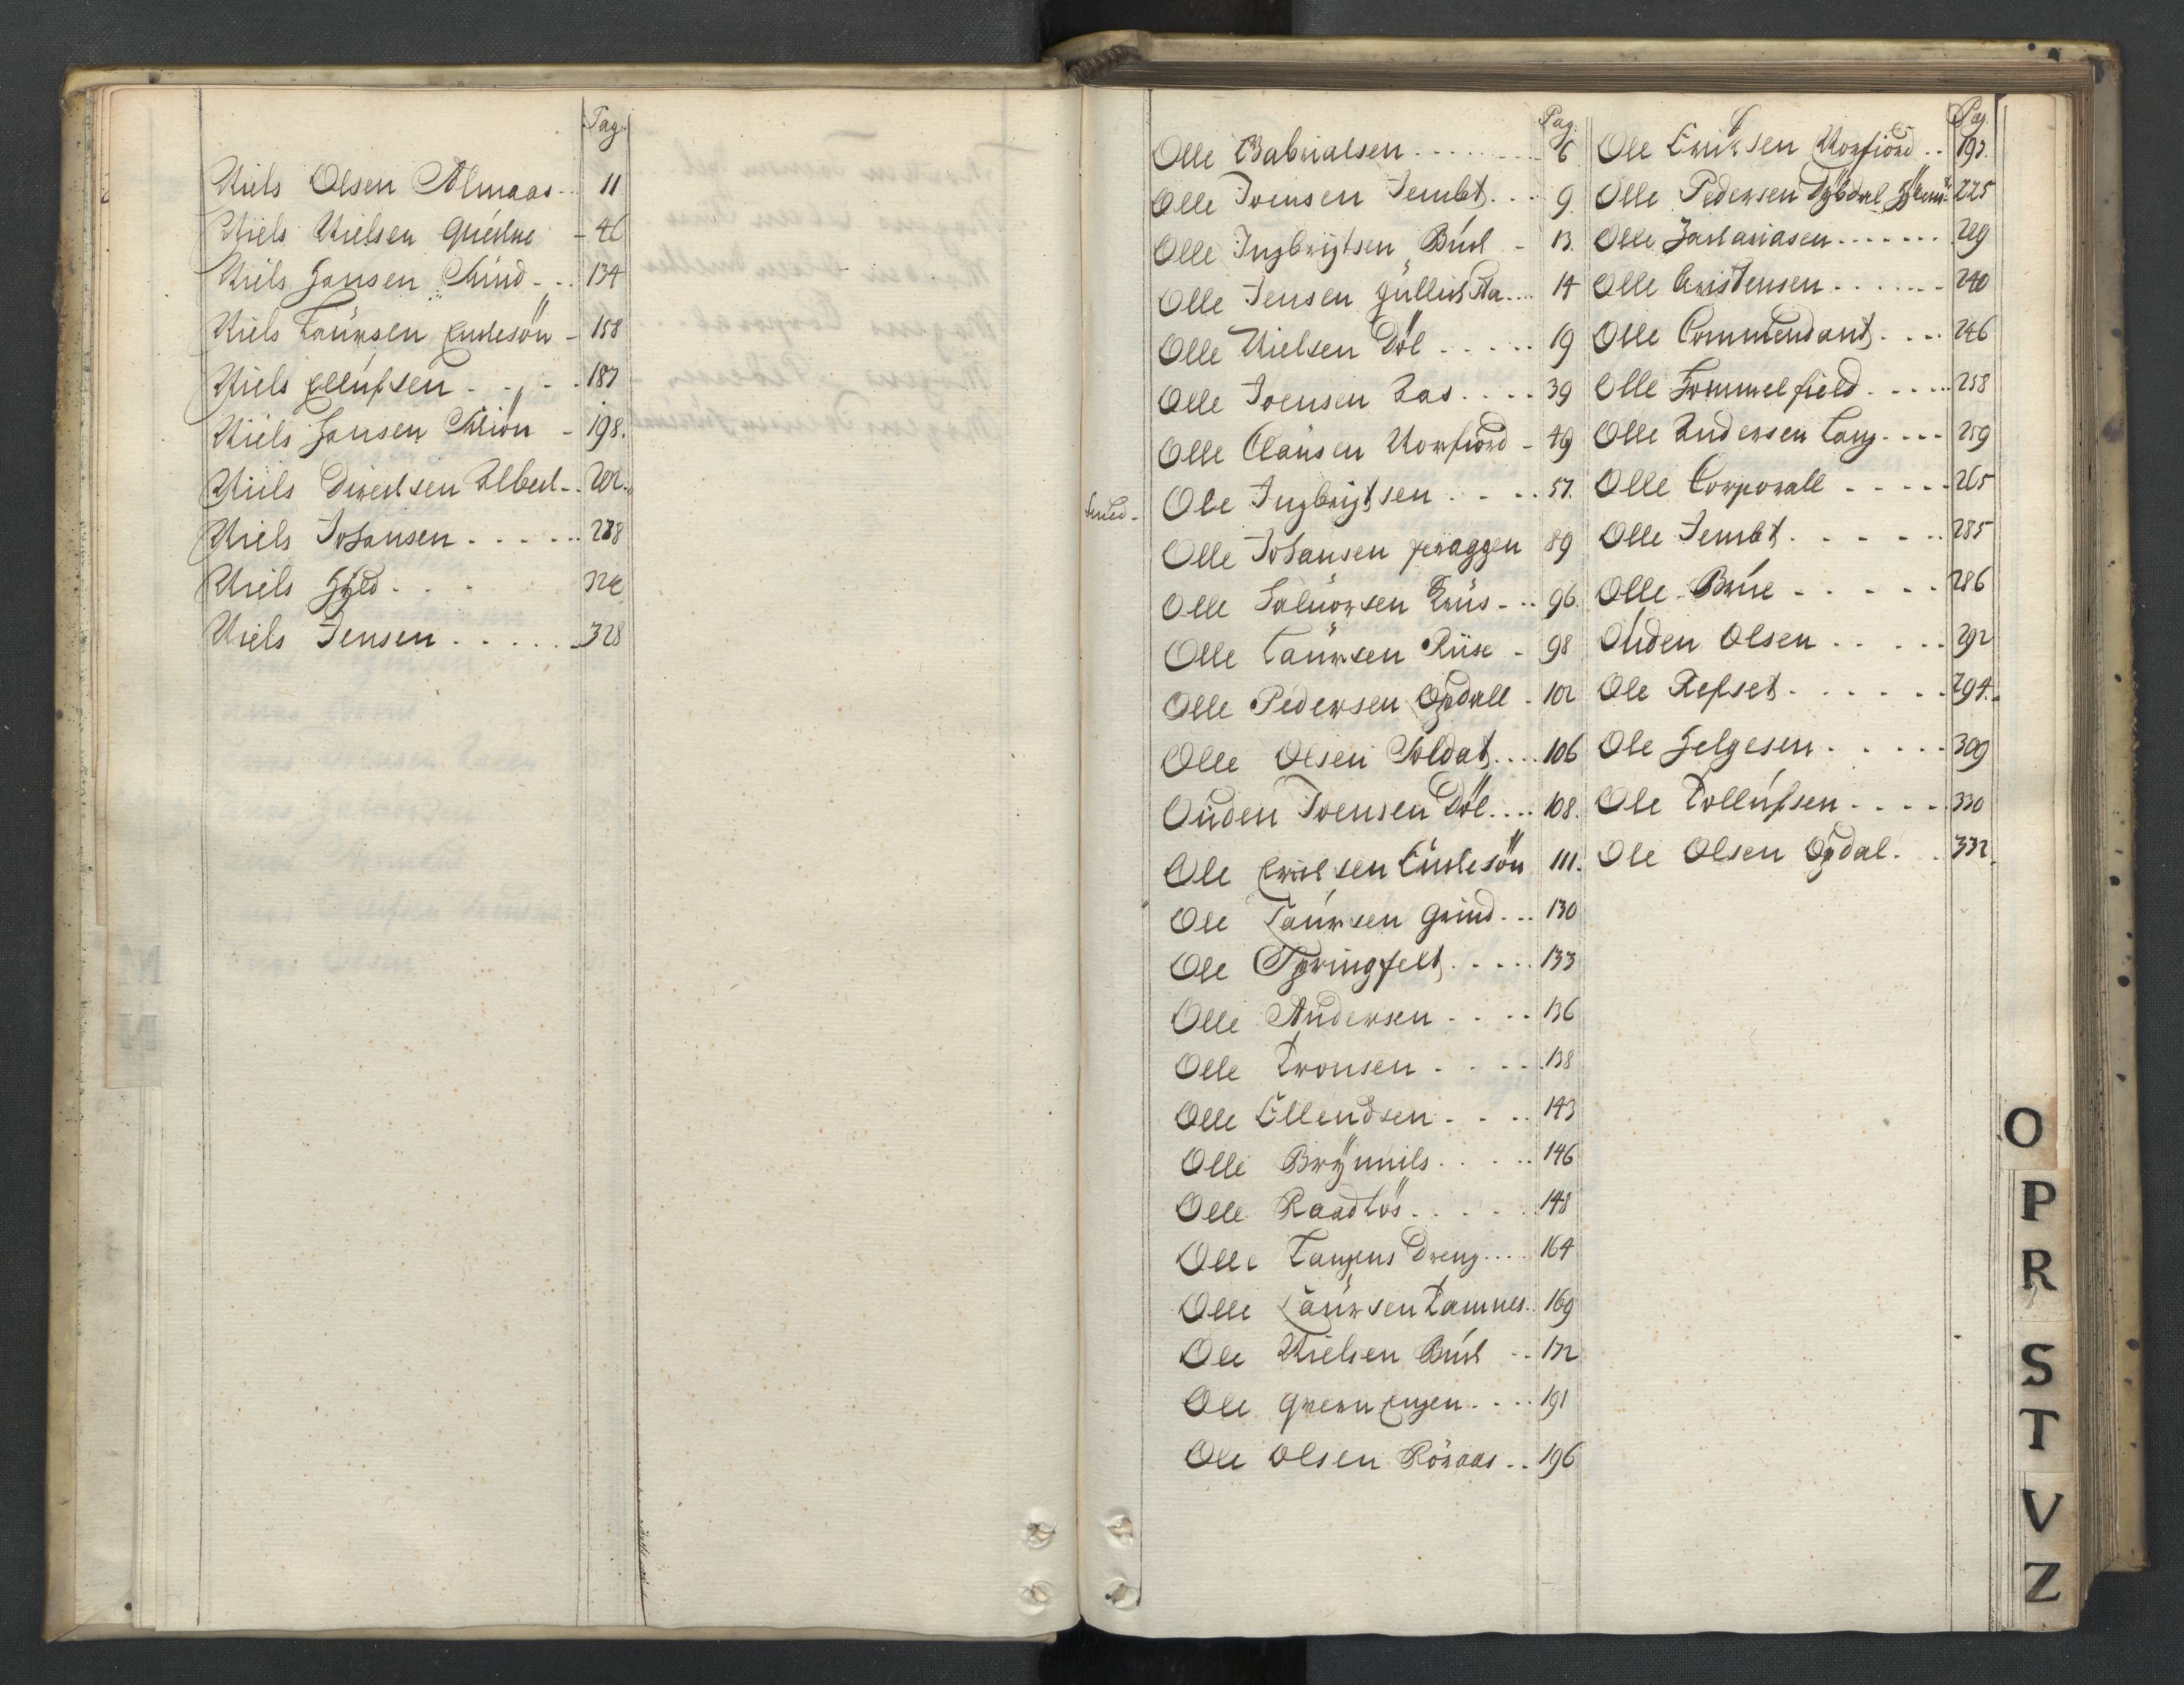 Pag:
Niels Olsen Almaas.. 11
Niels Nielsen Qverne - 46
Niels Hansen Schind - .. 134
Niels Laursen Endresön - 158
Niels Ellufsen - . - . 187
Niels Hansen Schiön - 198.
Niels Direchsen Alberl - . 202.
Niels Johansen . . . . . . 278
Niels Hyld . . . 32
Niels Jensen . . . . . . 328
Pag:
Olle Gabrialsen . . . . . . . . 6
Olle Joensen Jembt . . . 9.
Olle Ingbrigtsen Buch - 13.
Olle Jensen Gullich 14
Olle Nielsen Döl . . . . . 19
Olle Joensen Aas . . . . 39
Olle Clausen Norfiord - 49
Smed - Ole Ingbrigtsen . . . . 57.
Olle Johansen Kraggen 89
Olle Halvorsen Krus - .. 96.
Olle Laursen Riise - 98
Olle Pedersen Opdall - 102
Olle Olsen Soldat . . . . 106
Ouden Joensen Döl . . . . 108.
Ole Erichsen Endresön 111.
Ole Laursen Grind . . . 130
Ole Springfelt . . . . . 133
Olle Andersen . . . . 136
Olle Tronsen . . . . 138
Olle Ellendsen . . . . 143
Olle Brynnils . . . . . 146
Olle Raadlös . . . . . . 148
Olle Langens Dreng . . . . 164
Olle Laursen Tamnes. 169
Ole Nielsen Buch - . 172
Ole Qvern Engen . . . . 191
Ole Olsen Röraas . . 196
Pag.
Ole Eriksen Norfiord . . 197.
Olle Pedersen Dybdal 225
Olle Zachariasen . . . . . . . 229
Olle Christensen . . . . . . . 240
Olle Commendant . . . . 246
Olle Hommelfield . . . . . 258
Olle Andersen Lang . . . . 259
Olle Corporall . . . . . 265
Olle Jembt . . . . . . . 285
Olle Brue . . . . . . 286
Ouden Olsen . . . . . . 292
Ole Refset . . . . . . . 294.
Ole Helgesen . . . . . . 309
Ole Tollufsen . . . . . 330
Ole Olsen Opdal . . 332.
O
P
R
S
T
V
Z